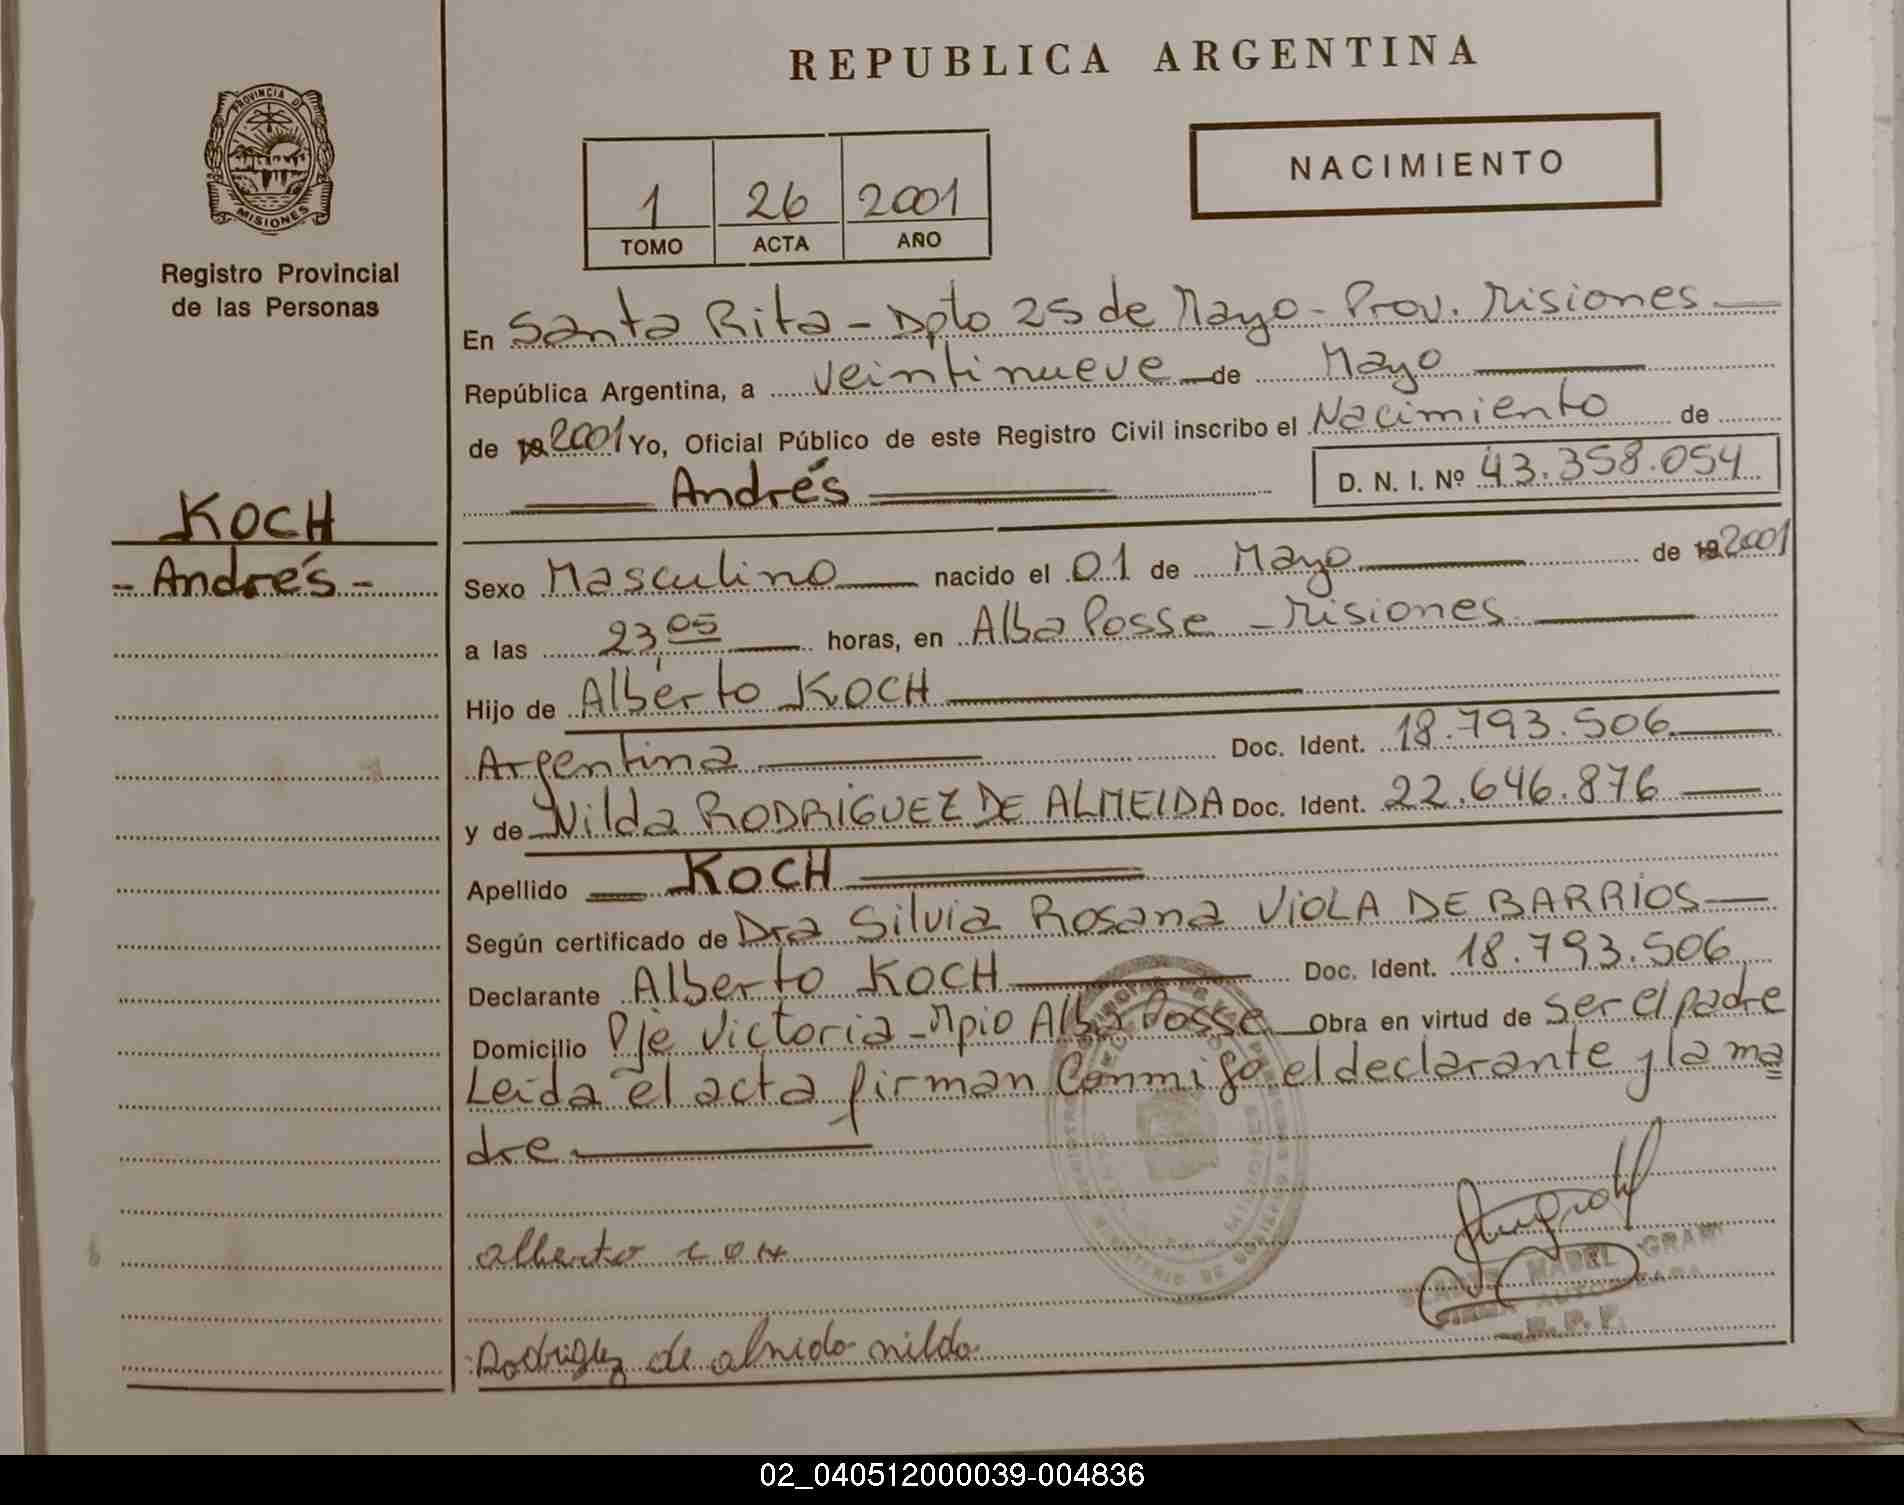 REPUBLICA ARGENTINA
PROVINCIA D
MISIONES
Registro Provincial
de las Personas
NACIMIENTO
1 26 2001
TOMO ACTA AÑO
En Santa Rita - Dpto 25 de Mayo - Prov. Misiones
República Argentina, a veintinueve de Mayo
de 19 2001 Yo, Oficial Público de este Registro Civil inscribo el Nacimiento de
Andrés D. N. I. Nº 43.358.054
KOCH
- Andrés -
Sexo Masculino nacido el 01 de Mayo de 19 2001
a las 23,05 horas, en Alba Posse - Misiones
Hijo de Alberto KOCH
Argentina Doc. Ident. 18.793.506
y de Nilda RODRIGUEZ DE ALMEIDA Doc. Ident. 22.646.876
Apellido KOCH
Según certificado de Dra Silvia Rosana VIOLA DE BARRIOS
Declarante Alberto KOCH Doc. Ident. 18.793.506
Domicilio Pje Victoria - Mpio Alba Posse Obra en virtud de ser el padre
Leida el acta firman Conmigo el declarante y la ma
dre
alberto
MABEL
R. P. P.
Rodriguez de almida nilda
02_040512000039-004836